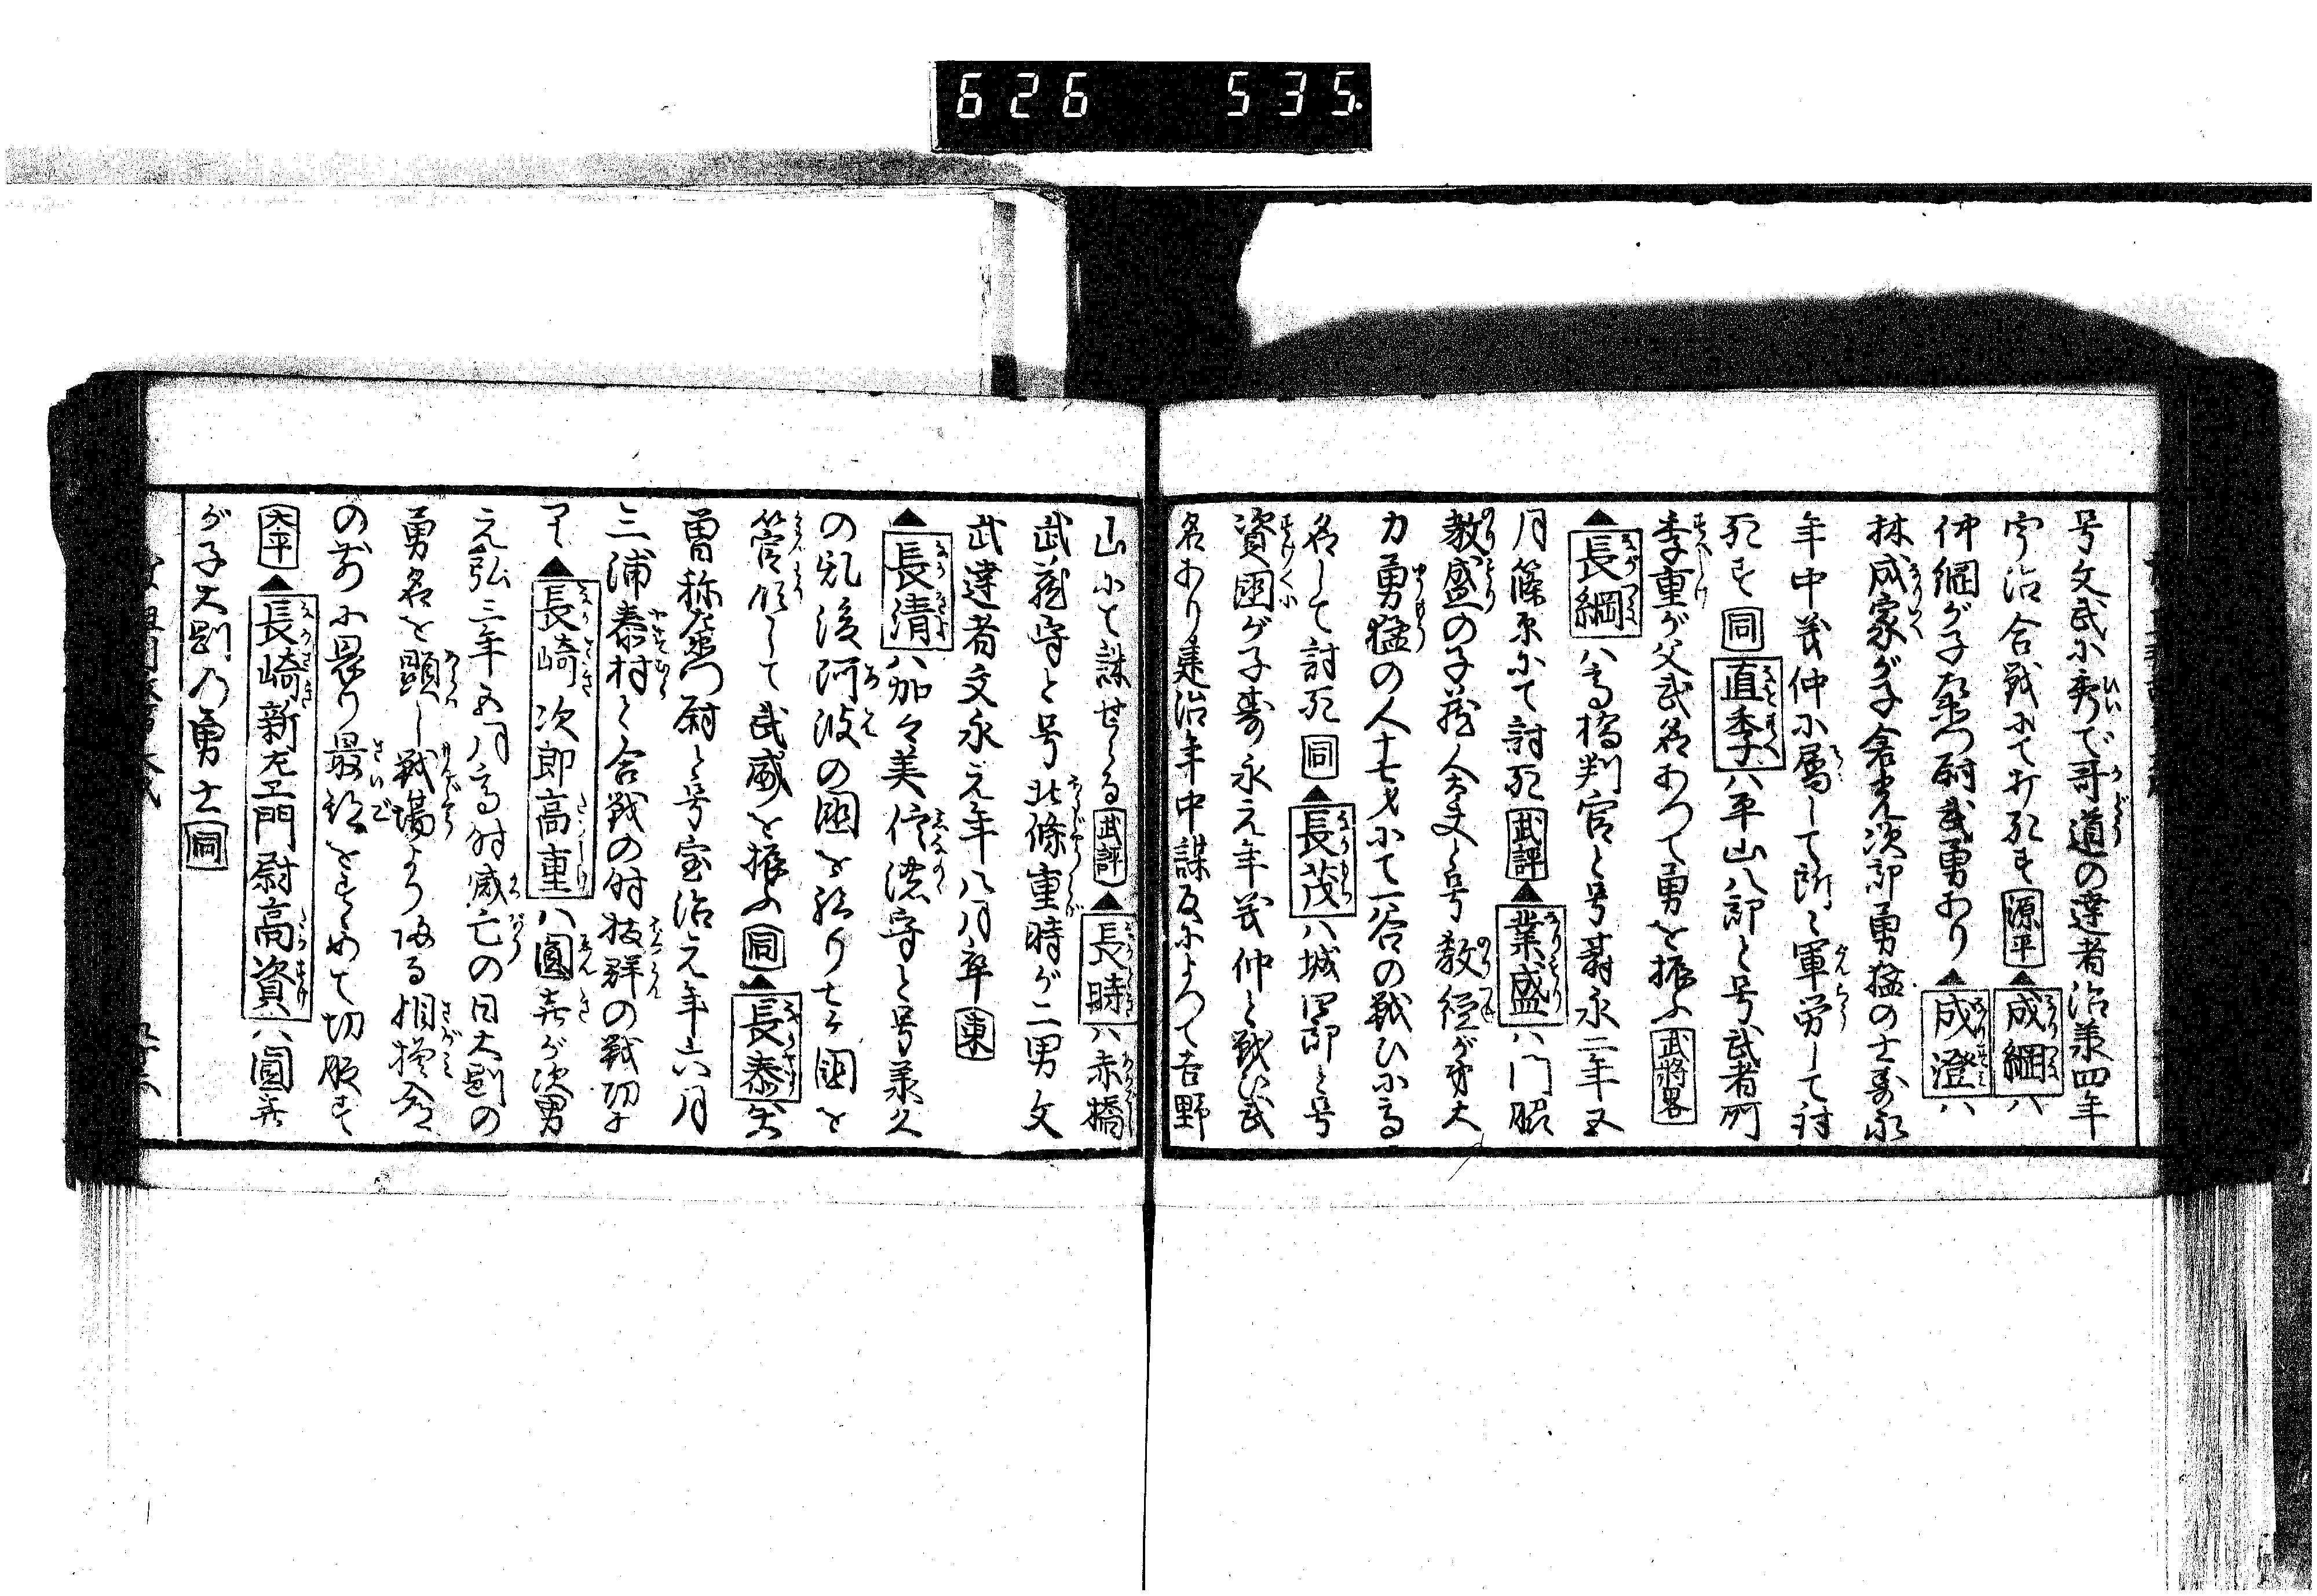 626 535.
号文武に秀で哥道の達者治承四年
宇治合戦にて打死す 源平 ▲成綱ハ
仲綱が子左衛門尉武勇あり ▲成澄ハ
林成家が子倉光次郎勇猛の士寿永
年中義仲に属して所々軍労して討
死す 同 直季ハ平山八郎と号武者所
季重が父武名あつて勇を振ふ 武将畧
▲長綱ハ高橋判官と号壽永二年五
月篠原にて討死 武評 ▲業盛ハ門脇
教盛の子蔵人大夫と号教経が弟大
力勇猛の人十七才にて一谷の戦ひに高
名して討死 同 ▲長茂ハ城四郎と号
資国が子壽永元年義仲と戦ひ武
名あり建治年中謀反によつて吉野
山にて誅せらる 武評 ▲長時ハ赤橋
武蔵守と号北條重時が二男文
武達者文永元年八月卒 東
▲長清ハ加々美信濃守と号承久
の乱後阿波の国を給り七ヶ国を
管領して武威を振ふ 同 ▲長泰
曽称左衛門尉と号宝治元年六月
三浦泰村と合戦の時抜群の戦功
▲長崎次郎高重ハ圓喜が次男
元弘三年五月高時滅亡の日大剛の
勇名を顕し戦場より帰る相摸入道
の前に畏り最初をすゝめて切服す
太平 ▲長崎新左エ門尉高資ハ圓喜
が子大剛乃勇士 同